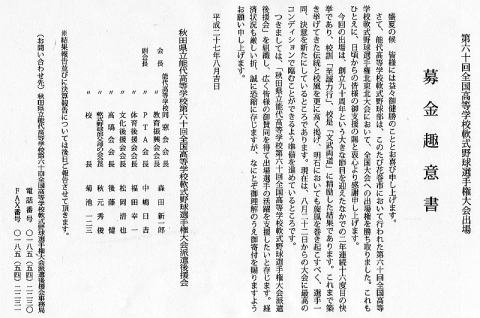 第六十回全国高等学校軟式野球選手権大会出場
募金趣意書
盛夏の候　皆様には益々御健勝のこととお喜び申し上げます。
さて、能代高等学校軟式野球部は、このたび花巻市において行われた第六十回全国高等
学校軟式野球選手権北東北大会において、全国大会への出場権を勝ち取りました。これも
ひとえに、日頃からの皆様の御支援の賜と衷心より感謝申し上げます。
今回の出場は、創立九十周年という大きな節目を迎えたなかでの二年連続十六度目の快
挙であり、校訓「至誠力行」、校是「文武両道」に精励した結果であります。これまで築
き挙げてきた伝統と校風を更に高く掲げ、明石においても旋風を巻き起こすべく、選手一
同、決意を新たにしているところであります。現在は、八月二十二日からの大会に最高の
コンディションで臨むことができるよう準備を進めているところです。
つきましては、「秋田県立能代高等学校第六十回全国高等学校軟式野球選手権大会派遣
後援会」を組織し、広く皆様の御賛同を得て出場選手の活躍を支援したいと存じます。経
済状況も厳しい折、誠に恐縮に存じますが、なにとぞ御理解のうえ御寄付を賜りますよう
お願い申し上げます。
平成二十七年八月吉日
秋田県立能代高等学校第六十回全国高等学校軟式野球選手権大会派遣後援会
会長　能代高等学校同窓会会長　森田新一郎
副会長　〃　ＰＴＡ会長　中嶋日吉
〃　〃　教育振興会会長
〃　〃　体育後援会会長　福田幸一
〃　〃　文化後援会会長　松岡清也
〃　〃　高頌会会長
〃　〃　軟式野球部父母の会会長　秋元秀俊
〃　〃　校長　菊池一二三
※結果報告並びに決算報告については後日ご報告させて頂きます。
（お問い合わせ先）秋田県立能代高等学校第六十回全国高等学校軟式野球選手権大会派遣後援会事務局
電話番号　〇一八五（五四）二二三〇
ＦＡＸ番号　〇一八五（五四）二二三一